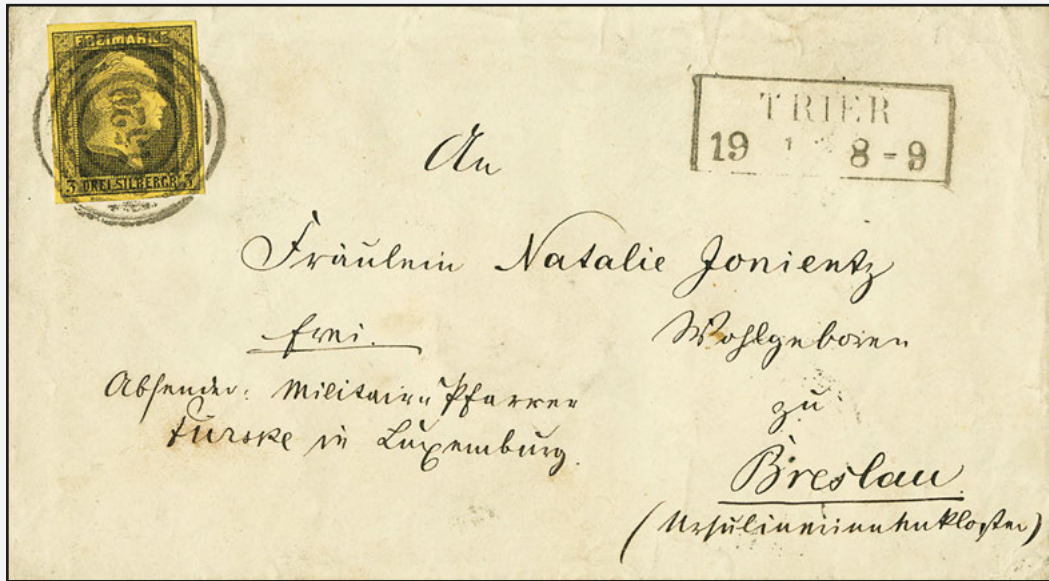 FREIMARKE
3 DREI SILBERGR. 3
TRIER
19 1 8-9
An
Fräulein Natalie Jonientz
frei.
Wohlgeboren
Absender: Militair-Pfarrer
in Luxemburg.
zu
Breslau
(Ursulinerinnenkloster)